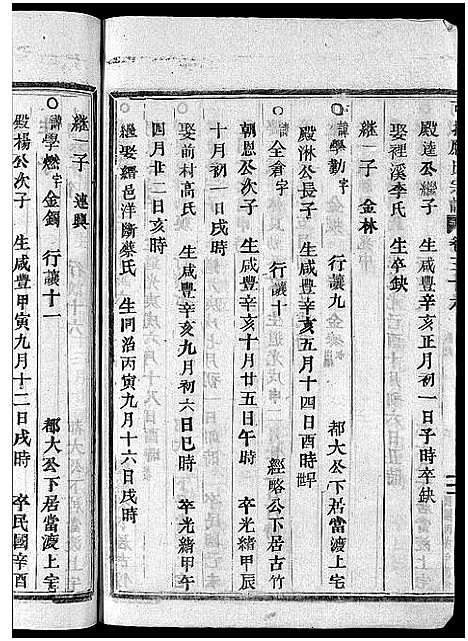 殿達公繼子　生咸豐辛亥正月初一日子時卒缺
娶裡溪李氏　生卒缺
繼一子　金林
諱學勤字　行讓九　都大公下居當渡上宅
殿淋公長子　生咸豐辛亥五月十四日酉時
諱全肴字　行讓十　經略公下居古竹
朝恩公次子　生咸豐辛亥十月廿五日午時　卒光緒甲辰
十月初一日戌時
娶前村高氏　生咸豐辛亥九月初六日巳時　卒光緒甲午
四月廿二日亥時
娶縉邑洋斷蔡氏　生同治丙寅九月十六日戌時
繼一子　連興
諱學燃字金錫　行讓十一　都大公下居當渡上宅
殿楊公次子　生咸豐甲寅九月十二日戌時　卒民國辛酉